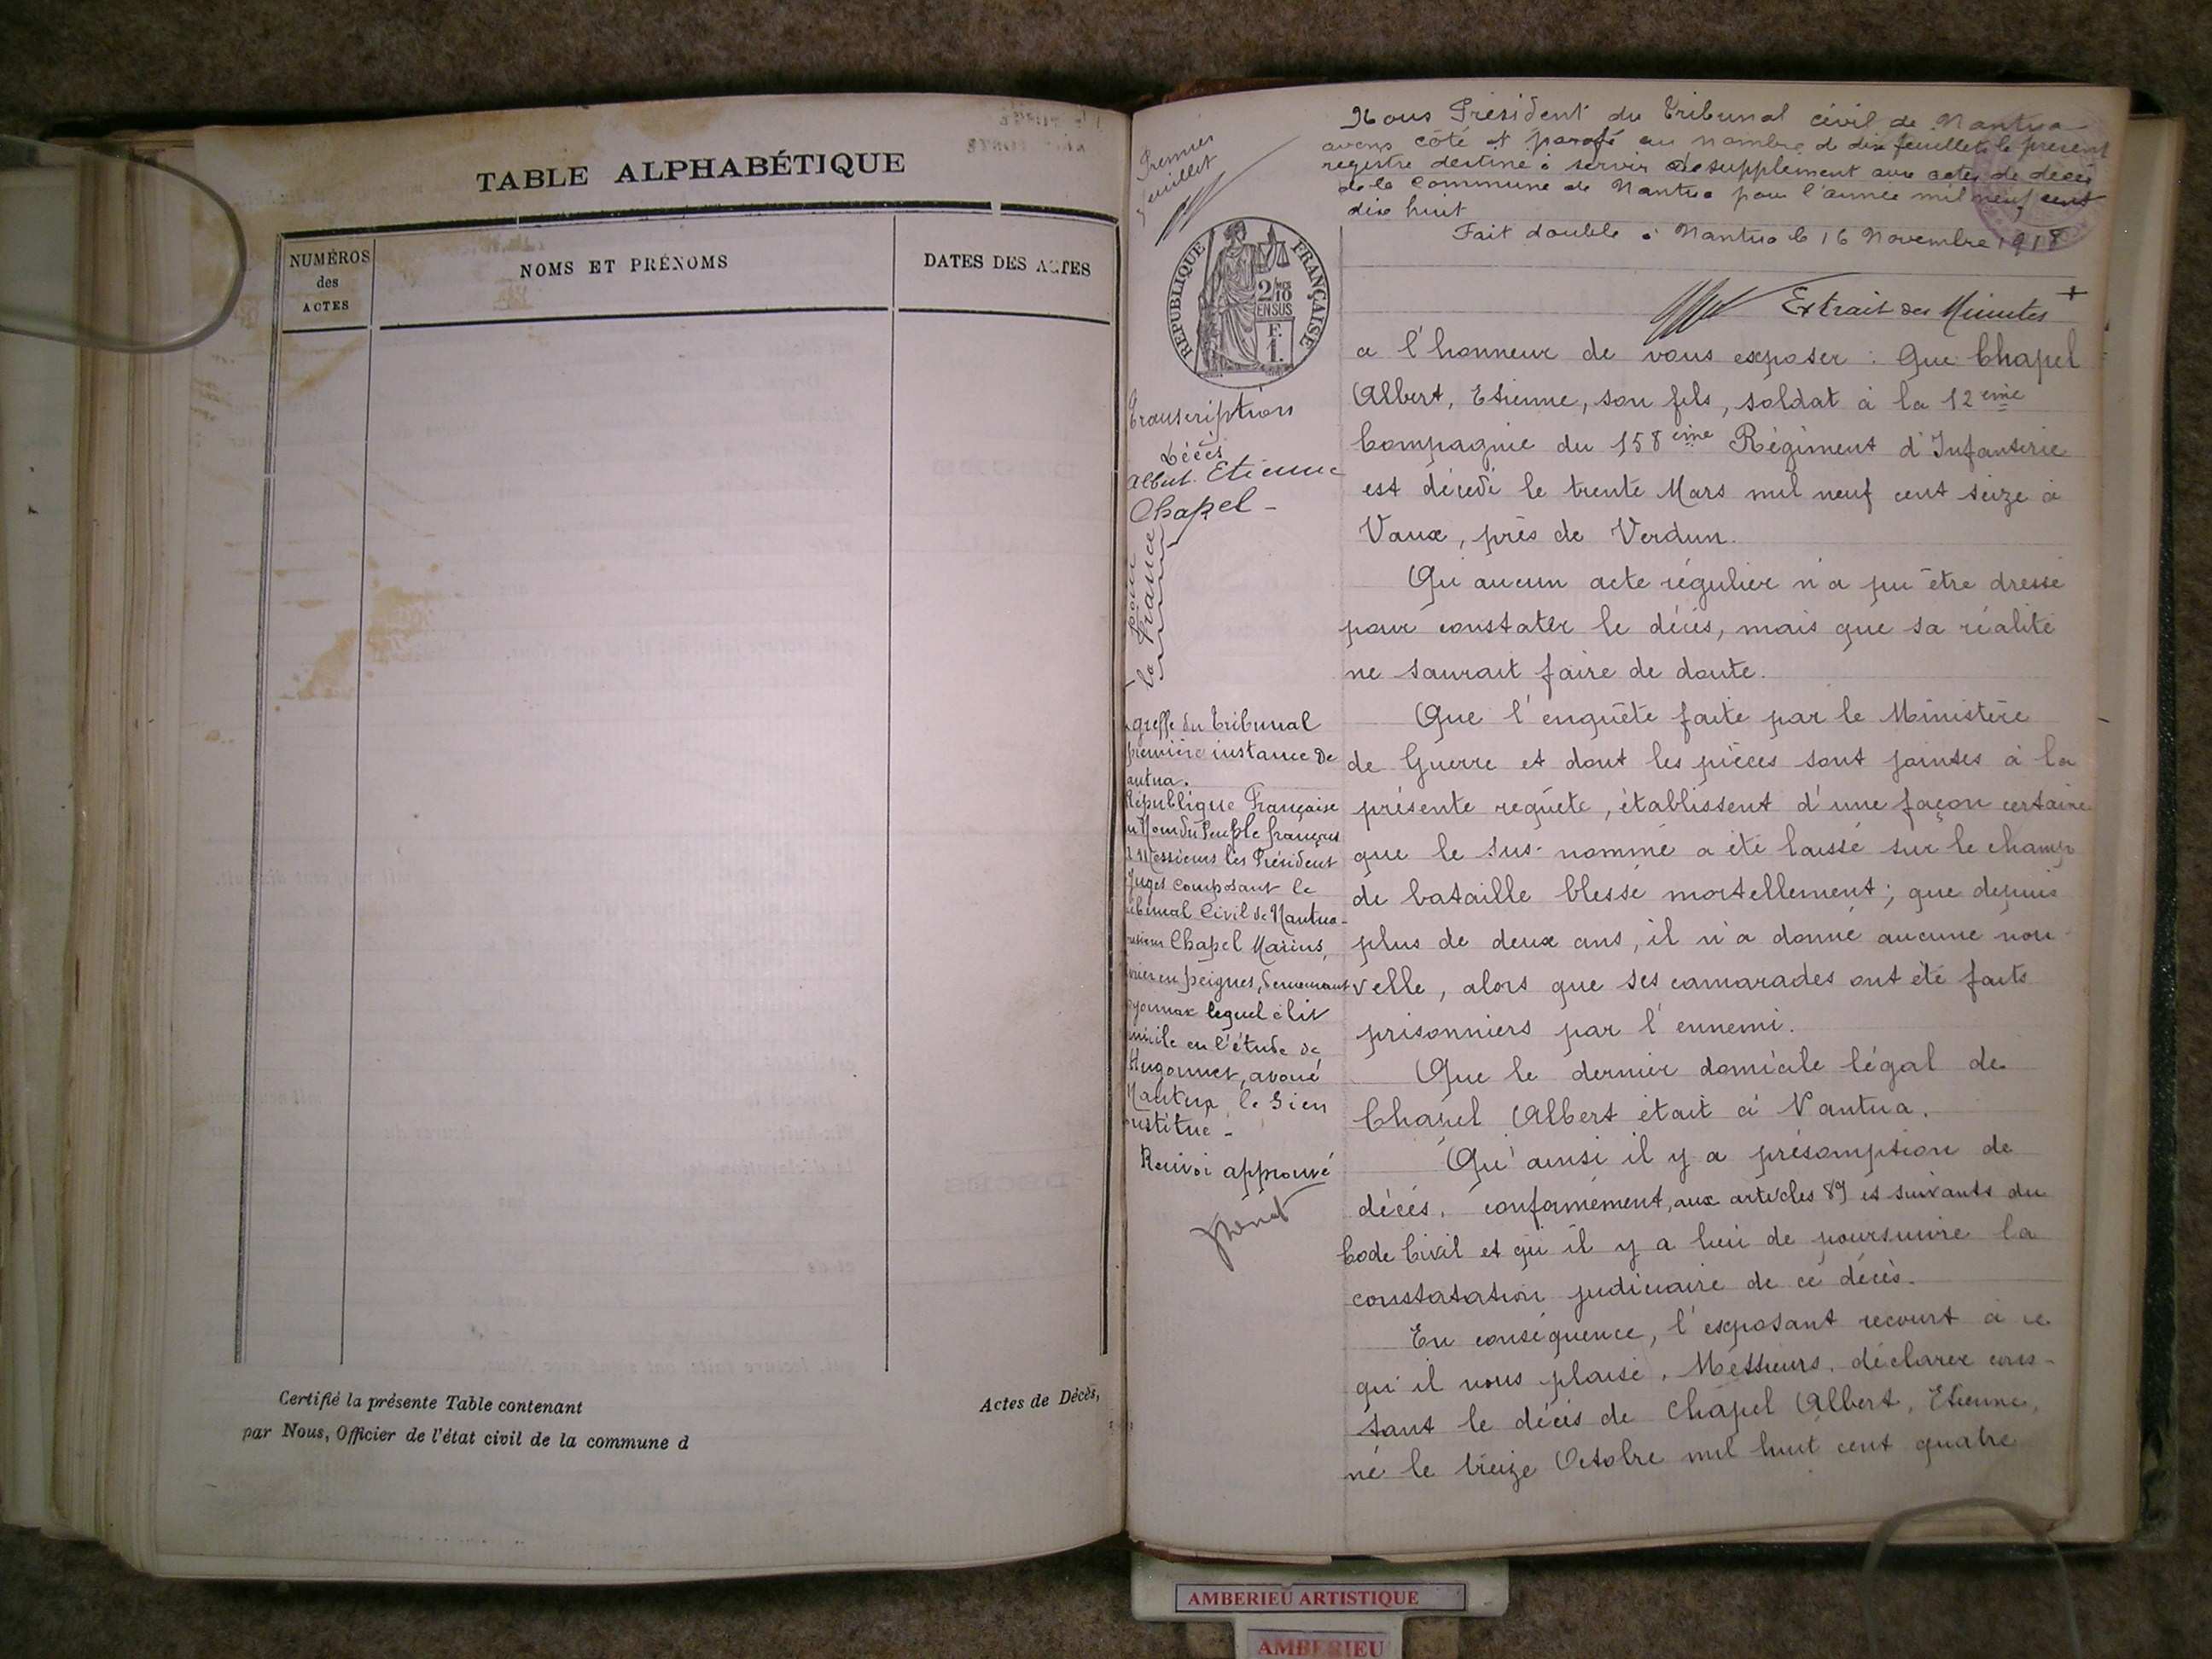 TABLE ALPHABÉTIQUE
NUMÉROS
des
ACTES
NOMS ET PRÉNOMS
DATES DES ACTES
Certifié la présente Table contenant
Actes de Décès,
par Nous, Officier de l'état civil de la commune d
Premier
feuillet
Nous Président du Tribunal civil de Nantua
avons côté et parafé au nombre de dix feuillets le présent
registre destiné à servir de supplément aux actes de décès
de la Commune de Nantua pour l'année mil neuf cent
dix huit
Fait double à Nantua le 16 Novembre 1918
RÉPUBLIQUE FRANÇAISE
2/10
EN SUS
F.
1.
Extrait des Minutes +
Transcription
Décès
Albert Etienne
Chapel -
pour
la france
greffe du tribunal
première instance de
antua.
République Française
u Nom du Peuple français
Messieurs les Président
Juges composant le
ibunal Civil de Nantua-
Chapel Marius,
en peignes, demeurant
yonnax lequel élit
micile en l'étude de
Hugonnet, avoué
Nantua, le sien
nstitue -
Renvoi approuvé
a l'honneur de vous exposer : Que Chapel
Albert, Etienne, son fils, soldat à la 12 ème
Compagnie du 158 ème Régiment d'Infanterie
est décédé le trente Mars mil neuf cent seize à
Vaux, près de Verdun.
Qu'aucun acte régulier n'a pu être dressé
pour constater le décès, mais que sa réalité
ne saurait faire de doute.
Que l'enquête faite par le Ministère
de Guerre et dont les pièces sont jointes à la
présente requête, établissent d'une façon certaine
que le sus-nommé a été laissé sur le champ
de bataille blessé mortellement; que depuis
plus de deux ans, il n'a donné aucune nou-
velle, alors que ses camarades ont été faits
prisonniers par l'ennemi.
Que le dernier domicile légal de
Chapel Albert était à Nantua.
Qu'ainsi il y a présomption de
décès, conformément, aux articles 89 et suivants du
Code Civil et qu'il y a lieu de poursuivre la
constatation judiciaire de ce décès.
En conséquence, l'exposant recourt à ce
qu'il vous plaise, Messieurs, déclarer cons-
tant le décès de Chapel Albert, Etienne,
né le treize Octobre mil huit cent quatre
AMBERIEU ARTISTIQUE
AMBERIEU